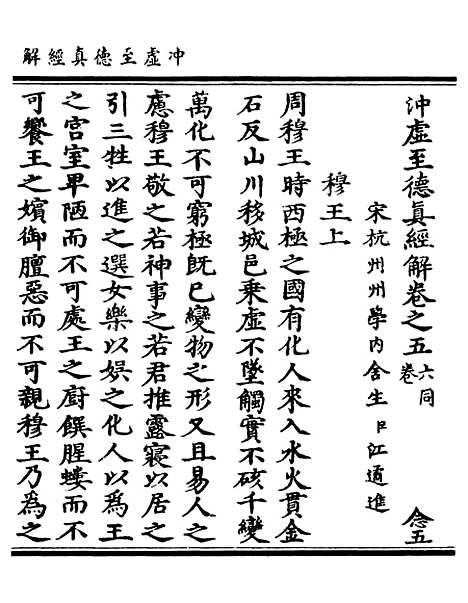 冲虛至德真經解
沖虛至德眞經解卷之五六同卷 念五
宋杭州州學内舍生臣江遹進
穆王上
周穆王時西極之國有化人來入水火貫金
石反山川移城邑乗虛不墜觸實不硋千變
萬化不可窮極既已變物之形又且易人之
慮穆王敬之若神事之若君推露寢以居之
引三牲以進之選女樂以娛之化人以爲王
之宮室卑陋而不可處王之廚饌腥螻而不
可饗王之嬪御膻惡而不可親穆王乃爲之